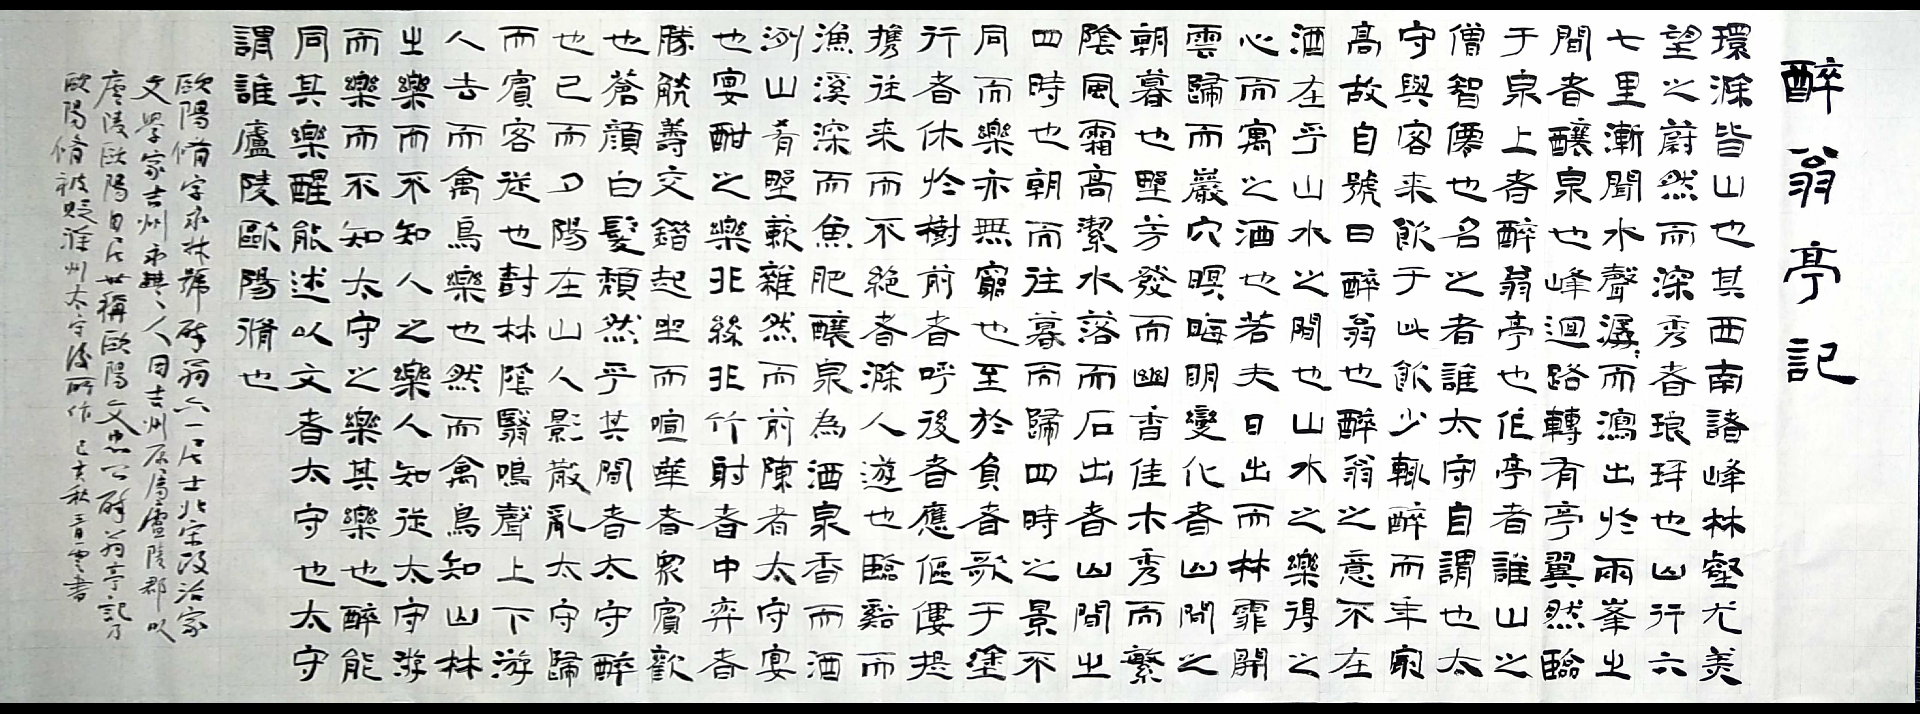 醉翁亭記
環滁皆山也其西南諸峰林壑尤美
望之蔚然而深秀者琅玡也山行六
七里漸聞水聲潺〻而瀉出於兩峯之
間者釀泉也峰迴路轉有亭翼然臨
于泉上者醉翁亭也作亭者誰山之
僧智僊也名之者誰太守自謂也太
守與客来飲于此飲少輒醉而年寂
髙故自號曰醉翁也醉翁之意不在
酒在乎山水之間也山水之樂得之
心而寓之酒也若夫日出而林霏開
雲歸而巖穴暝晦明變化者山間之
朝暮也野芳發而幽香佳木秀而繁
陰風霜髙潔水落而石出者山間之
四時也朝而往暮而歸四時之景不
同而樂亦無窮也至於負者歌于塗
行者休於樹前者呼後者應傴僂提
携往来而不絕者滁人遊也臨谿而
漁溪深而魚肥釀泉為酒泉香而酒
洌山肴野蔌雜然而前陳者太守宴
也宴酣之樂非絲非竹射者中弈者
勝觥籌交錯起坐而喧嘩者眾賓歡
也蒼顔白髮頹然乎其間者太守醉
也已而夕陽在山人影散亂太守歸
而賓客從也樹林陰翳鳴聲上下游
人去而禽鳥樂也然而禽鳥知山林
之樂而不知人之樂人知從太守游
而樂而不知太守之樂其樂也醉能
同其樂醒能述以文者太守也太守
謂誰廬陵歐陽脩也
歐陽脩字永叔號醉翁六一居士北宋政治家
文學家吉州永豐人因吉州原屬廬陵郡以
廬陵歐陽自居世稱歐陽文忠公醉翁亭記乃
歐陽脩被貶滁州太守後所作己亥秋青雲書